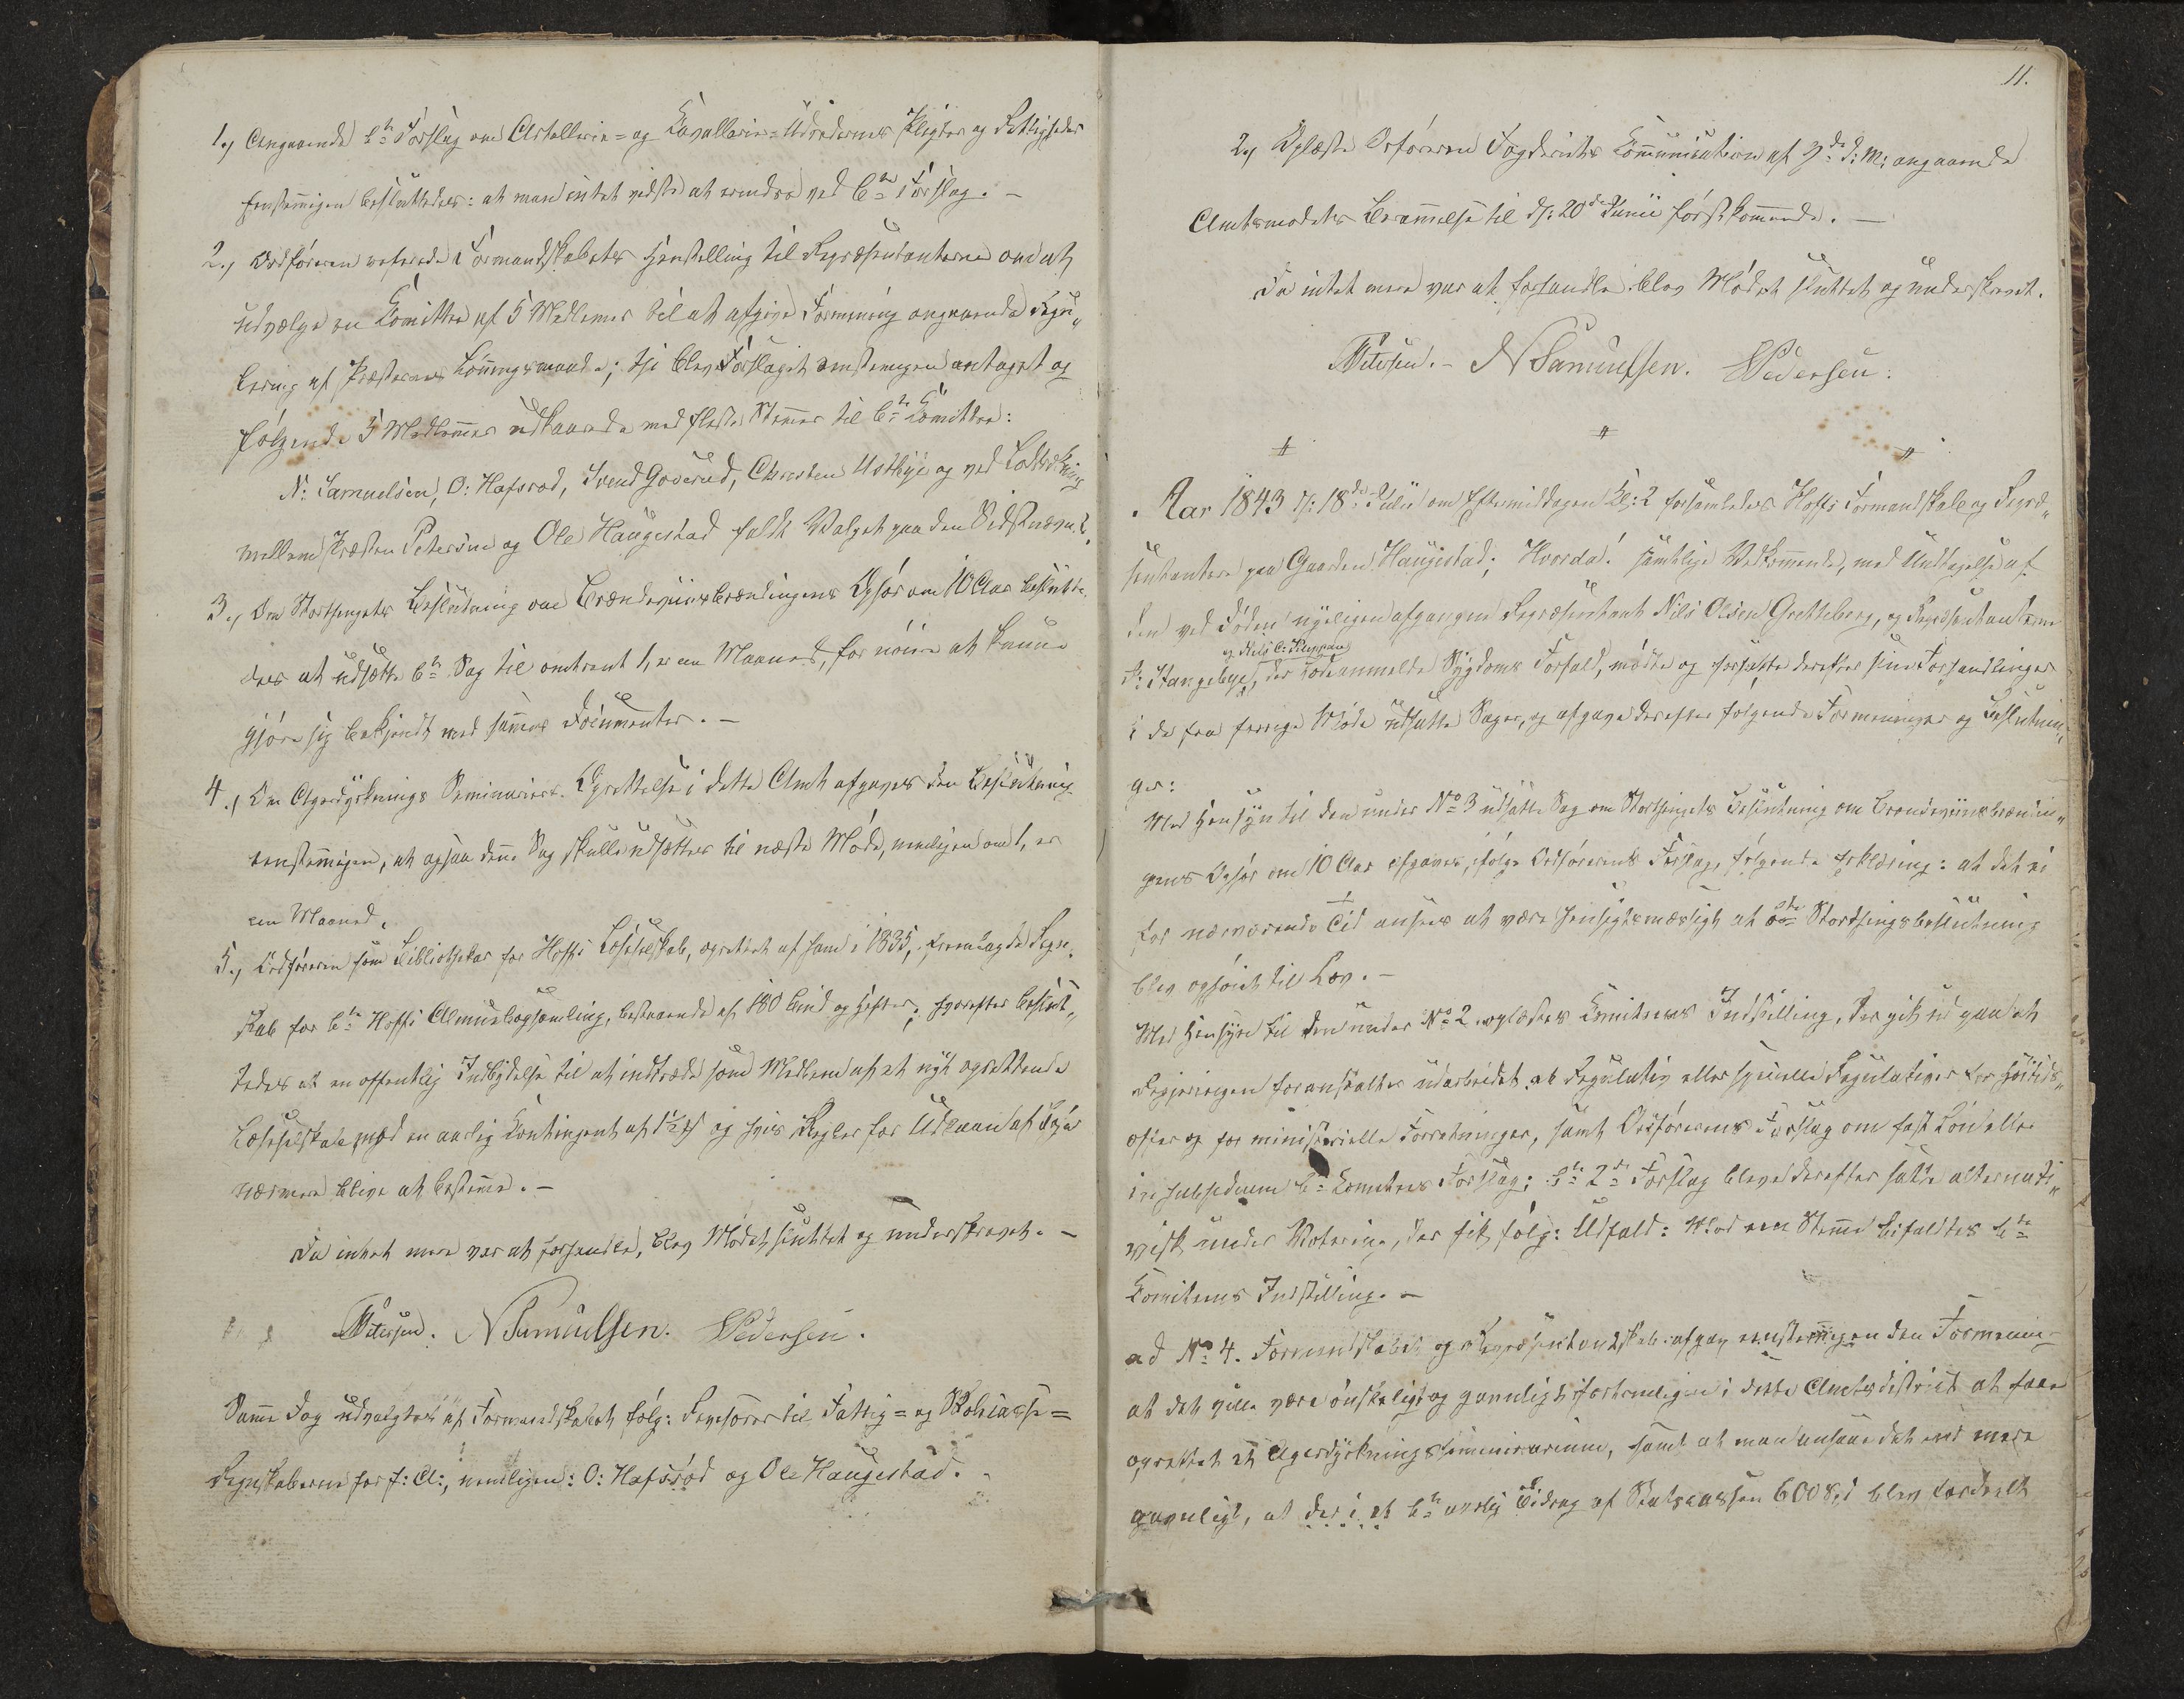 1., Angaaende bte Forslag om Artellerie- og Cavallerie-Udredernes Pligter og Rettigheder
Eenstemmigen besluttedes: at man intet vidste at erindre ved bte Forslag. –
2., Ordföreren refererede Formandskabets Henstilling til Repræsentanterne om at
udvælge en Comittee af 5 Medlemer til at afgive Formening angaaende Regu„
lering af Præsternes Lönningsmaade; thi blev Forslaget eenstemigen antaget og
fölgende 5 Medlemmer udkaarede med fleste Stemer til bte Comittee:
N: Samuelsen, O: Hafsrod, Svend Goverud, Christen Ustbye og ved Lodtrækning
mellem Præsten Petersen og Ole Haugestad faldt Valget paa den Sidstnævnte.
3., Om Storthingets Beslutning om Brændeviinsbrændingens Ophör om 10 Aar beslutte„
des at udsætte bte Sag til omtrent 1, een Maaned, for nöiere at kunne
gjöre sig bekjendt med samme Documenter. –
4., Om Agerdyrknings Seminariers Oprettelse i dette Amt afgaves den Beslutning
eenstemmigen, at ogsaa denne Sag skulle udsættes til næste Möde, nemligen om 1, en
een Maaned.
5., Ordföreren som Bibliothekar for Hoffs Læseselskab, oprettet af ham i 1835, fremlagde Regn„
skab for bte Hoffs Almuebogsamling, bestaaende af 180 Bind og Hefter; hvorefter beslut„
tedes at en offentlig Indbydelse til at indtræde som Medlem af et nyt oprettende
Læseselskab med en aarlig Contingent af 1/2 og hvis Regler for Udlaan af Böger
nærmere blive at bestemme. –
Da intet mere var at forhandle, blev Mödet sluttet og underskrevet. –
Petersen. N Samuelsen. Pedersen.
Samme Dag udvalgtes af Formandskabet fölg: Revisorer til Fattig- og Skolecasse-
Regnskaberne for f: A:, nemligen: O: Hafsröd og Ole Haugestad.
11.
2., Oplæste Ordföreren Fogderiets Communication af 7de d: M: angaaende
Amtsmödets Berammelse til d: 20de Junii förstkommende. –
Da intet mere var at forhandle blev Mödet sluttet og underskrevet.
Petersen. – N Samuelsen. Pedersen.
Aar 1843 d: 18de Julii om Eftermiddagen Kl: 2 forsamledes Hoffs Formandskab og Repræ„
sentantere paa Gaarden Haugestad; Hvorda! samtlige Vedkommende, med Undtagelse af
den ved Döden nyeligen afgangne Repræsentant Nils Olsen Gretteberg, og Repræsentanterne
og Nils C: Kleppan
P: Stangebye, der lod anmelde Sygdoms Forfald, mödte og fortsatte derefter sine Forhandlinger
i de fra forrige Möde udsatte Sager, og afgave derefter fölgende Formeninger og Beslutnin„
ger:
Med Hensyn til den under No 3 udsatte Sag om Storthingets Beslutning om Brændeviinsbrændin„
gens Ophör om 10 Aar afgaves, ifölge Ordförerens Forslag, fölgende Erklæring: at det ei
for nærværende Tid ansees at være hensigtsmæssigt at bte Storthingsbeslutning
blev ophöiet til Lov. –
Med Hensyn til den under No 2 oplæstes Comiteens Indstilling, der gik ud paa at
Regjeringen foranstalter udarbeidet et Regulativ eller specielle Regulativer for Höitids„
offer og for ministerielle Forretninger, samt Ordförerens Forslag om fast Lön eller
in subsidium bte Comitees Forslag; bte 2de Forslag bleve derefter satte alternati„
visk under Votering, der fik fölg: Udfald: Mod een Stemme bifaldtes bte
Comiteens Indstilling. –
ad No 4. Formandskabet og Repræsentantskab afgav eenstemmigen den Formening
at det ville være önskeligt og gavnligt fortrinligen i dette Amtsdistrict at faae
oprettet et Agerdyrkningsseminarium, samt at man ansaae det end mere
gavnligt, at der i et bte aarlig Bidrag af Statscassen 600 Spd blev fordeelt